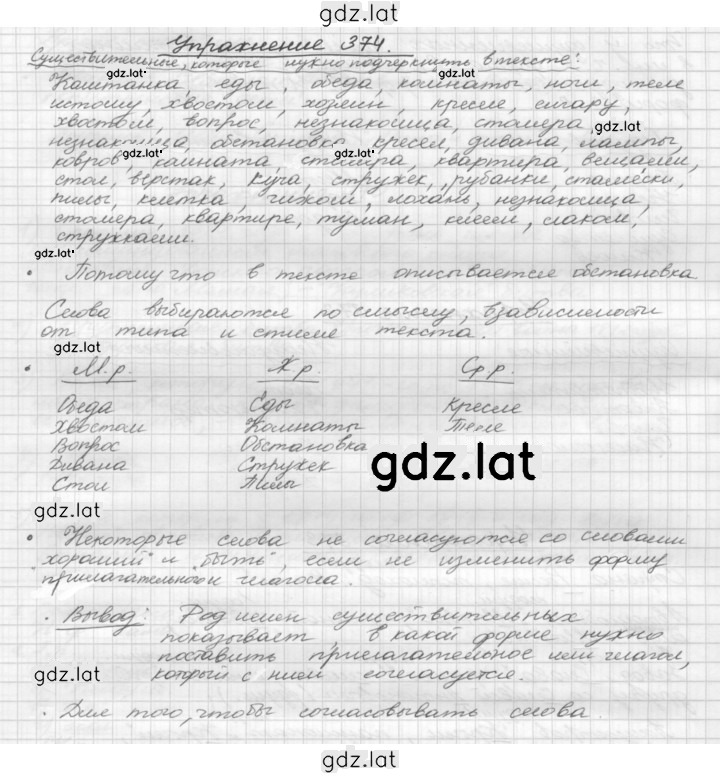 gdz.lat
Упражнение 374.
Существительные, которые нужно подчеркнуть в тексте:
gdz.lat
Каштанка, еды, обеда, комнаты, ноги, теле
истому, хвостом, хозяин, кресле, сигару,
хвостом, вопрос, незнакомца, столяра, gdz.lat
незнакомца, обстановки, кресел, дивана лампы,
gdz.lat gdz.lat
ковров, комната, столяра, квартира, вещами,
стол, верстак, куча, стружек, рубанки, стамески,
пилы, клетка, чижом, лохань, незнакомца,
столяра, квартире, туман, клеем, лаком,
стружками.
gdz.lat
• Потому что в тексте описывается обстановка
Слова выбираются по смыслу, в зависимости
от типа и стиля текста.
gdz.lat
• М.р. Ж.р. Ср.р.
Обеда Еды Кресле
Хвостом Комнаты Теле
Вопрос Обстановка
Дивана Стружек
Стол Пилы
gdz.lat
gdz.lat
• Некоторые слова не согласуются со словами
"хороший" и "быть", если не изменить форму
прилагательного и глагола.
• Вывод: Род имен существительных
показывает, в какой форме нужно
поставить прилагательное или глагол,
gdz.lat который с ним согласуется.
• Для того, чтобы согласовывать слова.
gdz.lat